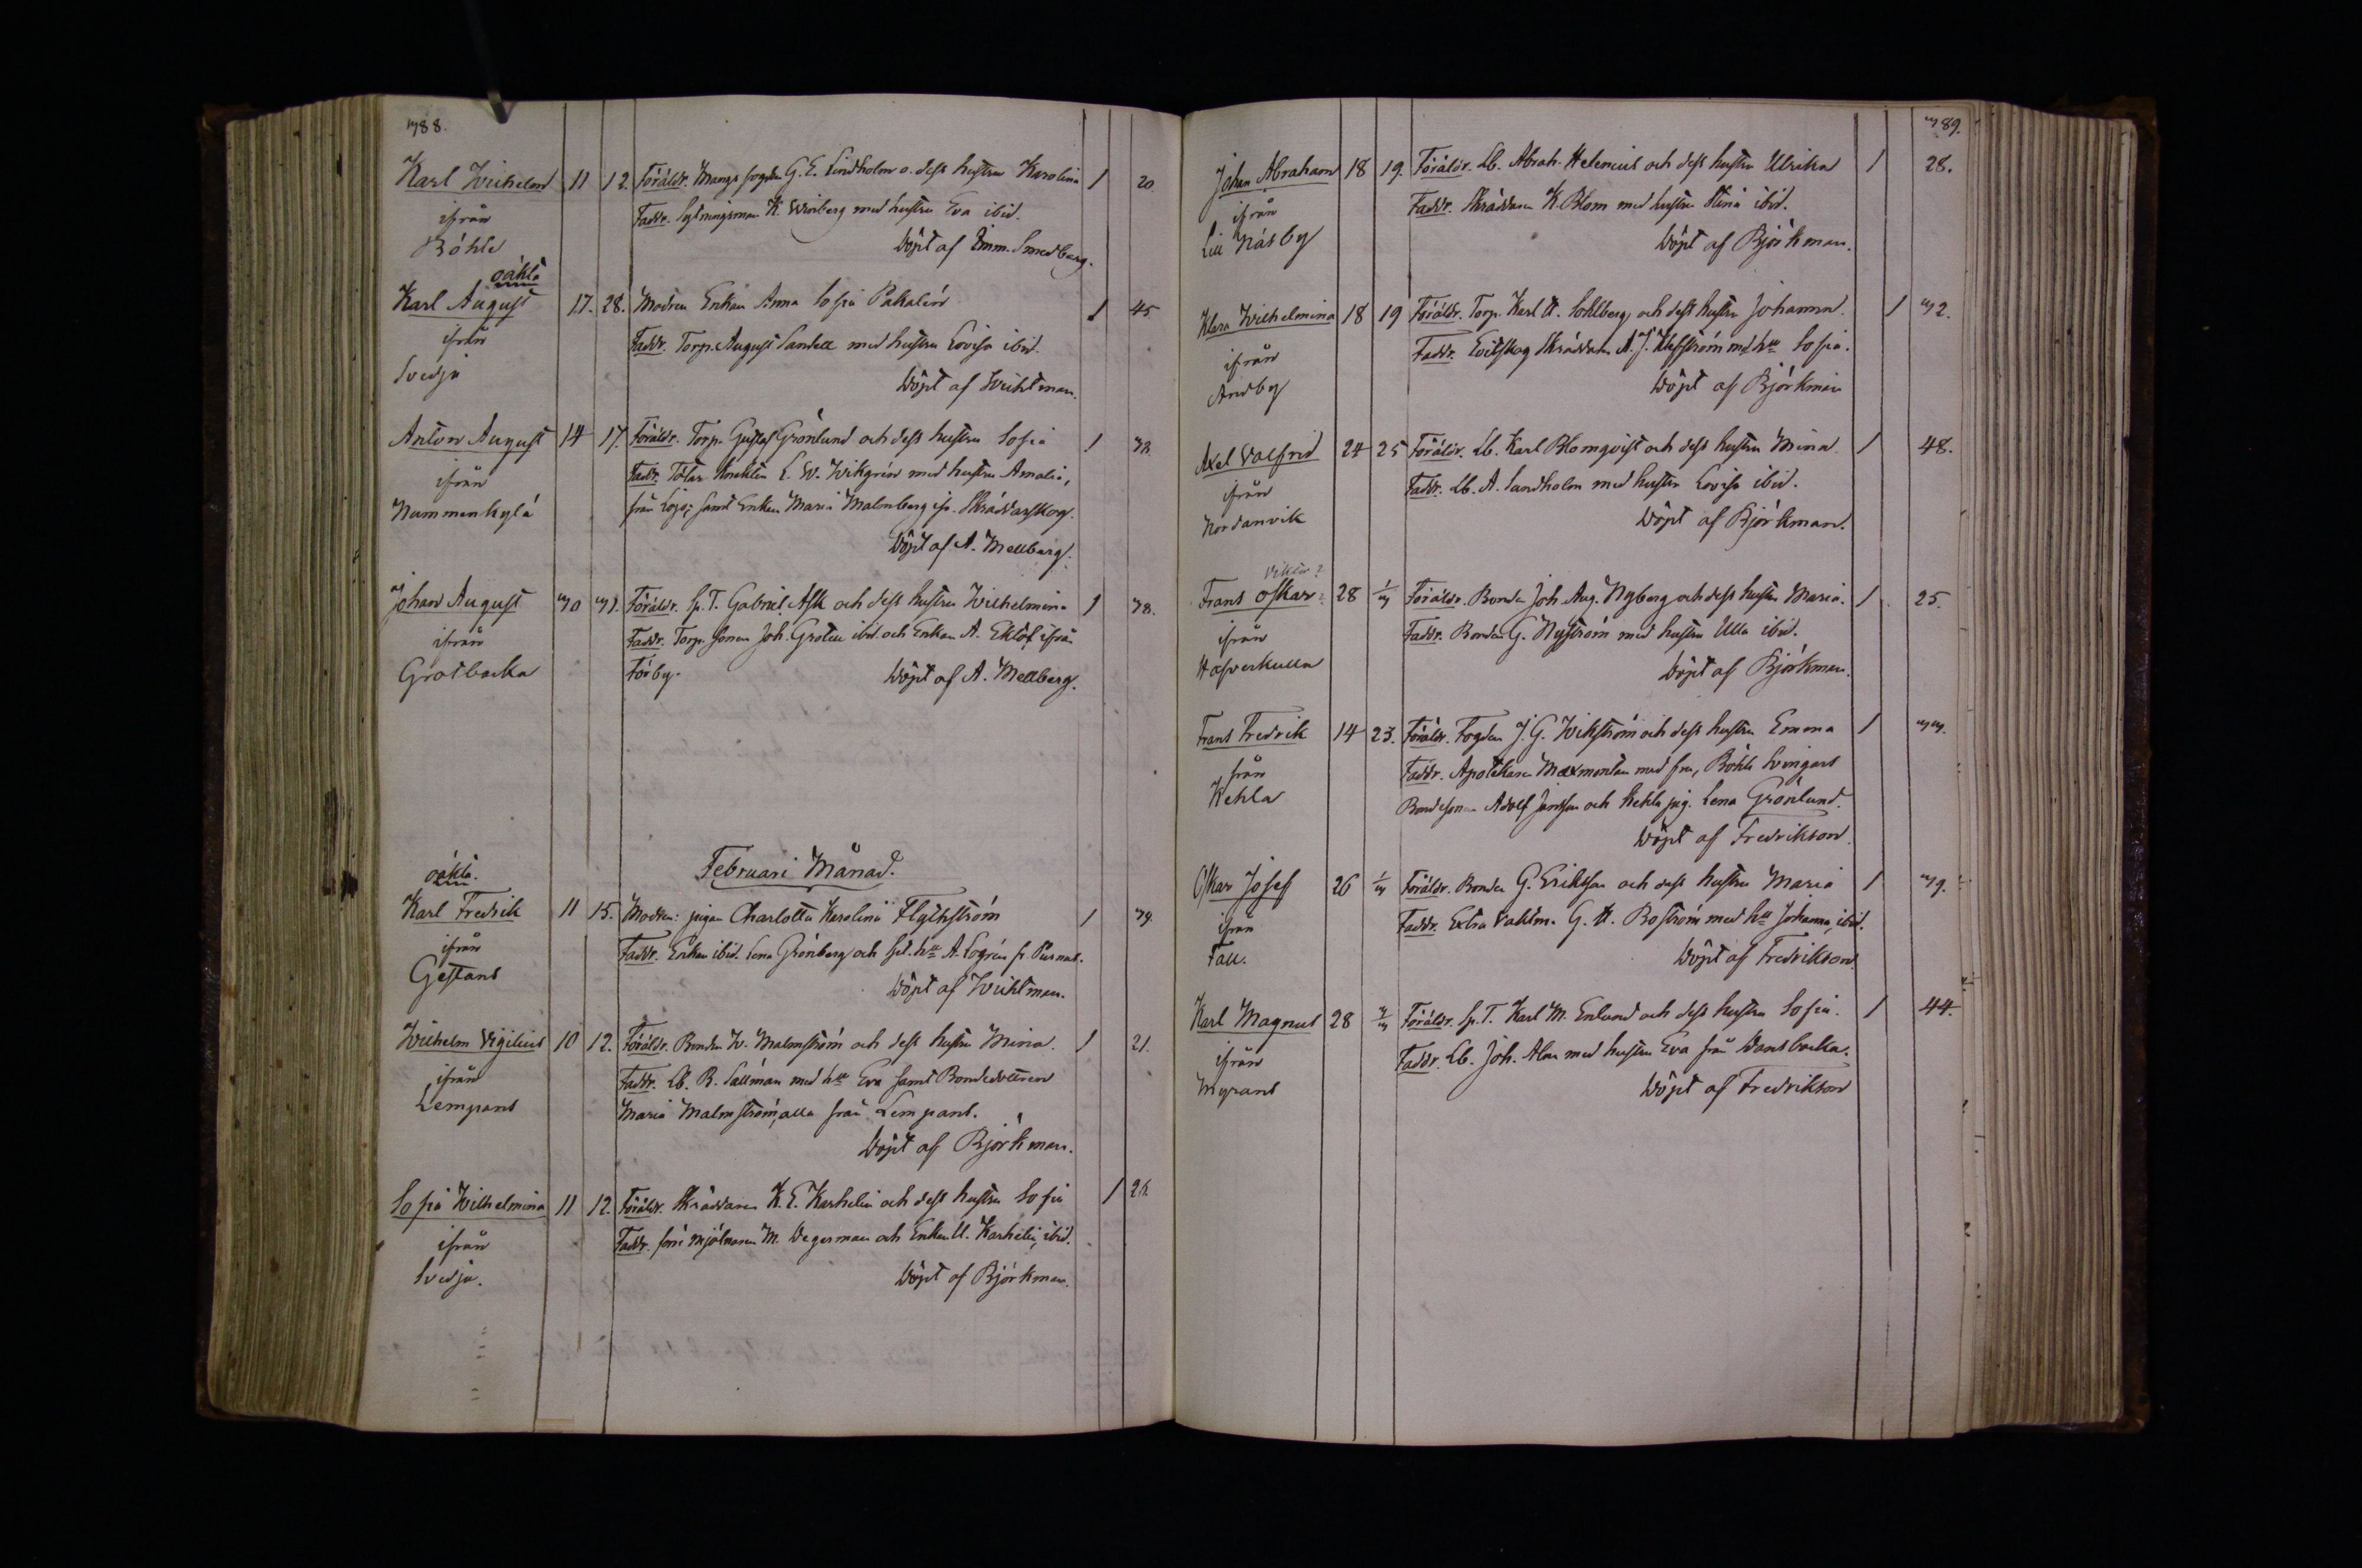 388.
Karl Wilhelm 11 12. Föräldr. Mangs fogden G. E. Lindholm o. dess hustru Karolina 1 20
ifrån Faddr. Sytningsman K. Winberg med hustru Eva ibid.
Böhle Döpt af Imm. Smedberg.
oäkta
Karl August 17. 28. Modren Enkan Anna Sofia Pakalén 1 45
ifrån Faddr. Torp. August Sandell med hustru Lovisa ibid.
Svedja Döpt af Wichtman.
Anton August 14 17. Föräldr. Torp. Gustaf Grönlund och dess hustru Sofia 1
ifrån Faddr. Tölar Smeden L. W. Wikgrén med hustru Amalia,
Nummenkylä från Lojo; samt Enkan Maria Malmberg ifr. Skräddarskog.
Döpt af A. Mellberg.
Johan August 30 31. Föräldr. Sp. T. Gabriel Ask och dess hustru Wilhelmina 1 38.
ifrån Faddr. Torp. sonen Joh. Grotell ibid. och Enkan A. Eklöf ifrån
Grotbacka Förby. Döpt af A. Mellberg.
Februari Månad.
oäkta.
Karl Fredrik 11 15. Modren: pigan Charlotta Karolina Flythström 1 39
ifrån Faddr. Enkan ibid. Lena Grönberg och A. Logrén fr. Purnus.
Gestans Döpt af Wichtman.
Wilhelm Vigilius 10 12. Föräldr. Bonden W. Malmström och dess hustru Mina 1 21.
ifrån Faddr. Lb. B. Sallman med hu Eva samt Bondedottren
Lempans Maria Malmström, alla från Lempans.
Döpt af Björkman.
Sofia Wilhelmina 11 12. Föräldr. Skräddaren K. E. Karhelin och dess hustru Sofia 1
ifrån Faddr. mjölnaren M. Degerman och Enkan U. Karhelin, ibid.
Svedja. Döpt af Björkman.
389.
Johan Abraham 18 19. Föräldr. Lb. Abrah. Helenius och dess hustru Ulrika 1 28.
ifrån Faddr. Skräddaren K. Blom med hustru Stina ibid.
Lill Näsby Döpt af Björkman.
Klara Wilhelmina 18 19 Föräldr. Torp. Karl A. Sohlberg och dess hustru Johanna. 1 32.
ifrån Faddr. Evitskog Skräddaren A. J. med hu Sofia.
Andby Döpt af Björkman
Axel Valfrid 24 25 Föräldr. Lb. Karl Blomqvist och dess hustru Mina 1 48.
ifrån Faddr. Lb. A. Sandholm med hustru Lovisa ibid.
Nordanvik Döpt af Björkman.
Viktor?
Frans Oskar? 28 1/3 Föräldr. Bonden Joh. Aug. Nyberg och dess hustru Maria. 1 25.
ifrån Faddr. Bonden G. Nyström med hustru Ulla ibid.
Hafverkulla Döpt af Björkman.
Frans Fredrik 14 23. Föräldr. Fogden J. G. Wikström och dess hustru Emma 1 33.
från Faddr. Apotekaren Maxmontan med fru, Böhle Svingars
Kehla Bondesonen Adolf Jansson och Kehla pig. Lena Grönlund.
Döpt af Fredrikson.
Oskar Josef 26 1/3 Föräldr. Bonden G. Eriksson och dess hustru Maria 1 39.
ifrån Faddr. Extra Vaktm. G. A. Boström med hu Johanna, ibid.
Fall. Döpt af Fredrikson.
Karl Magnus 28 3/3 Föräldr. Sp. T. Karl M. Enlund och dess hustru Sofia. 1 44.
ifrån Faddr. Lb. Joh. Alm med hustru Eva från Dansbacka.
Myrans Döpt af Fredrikson